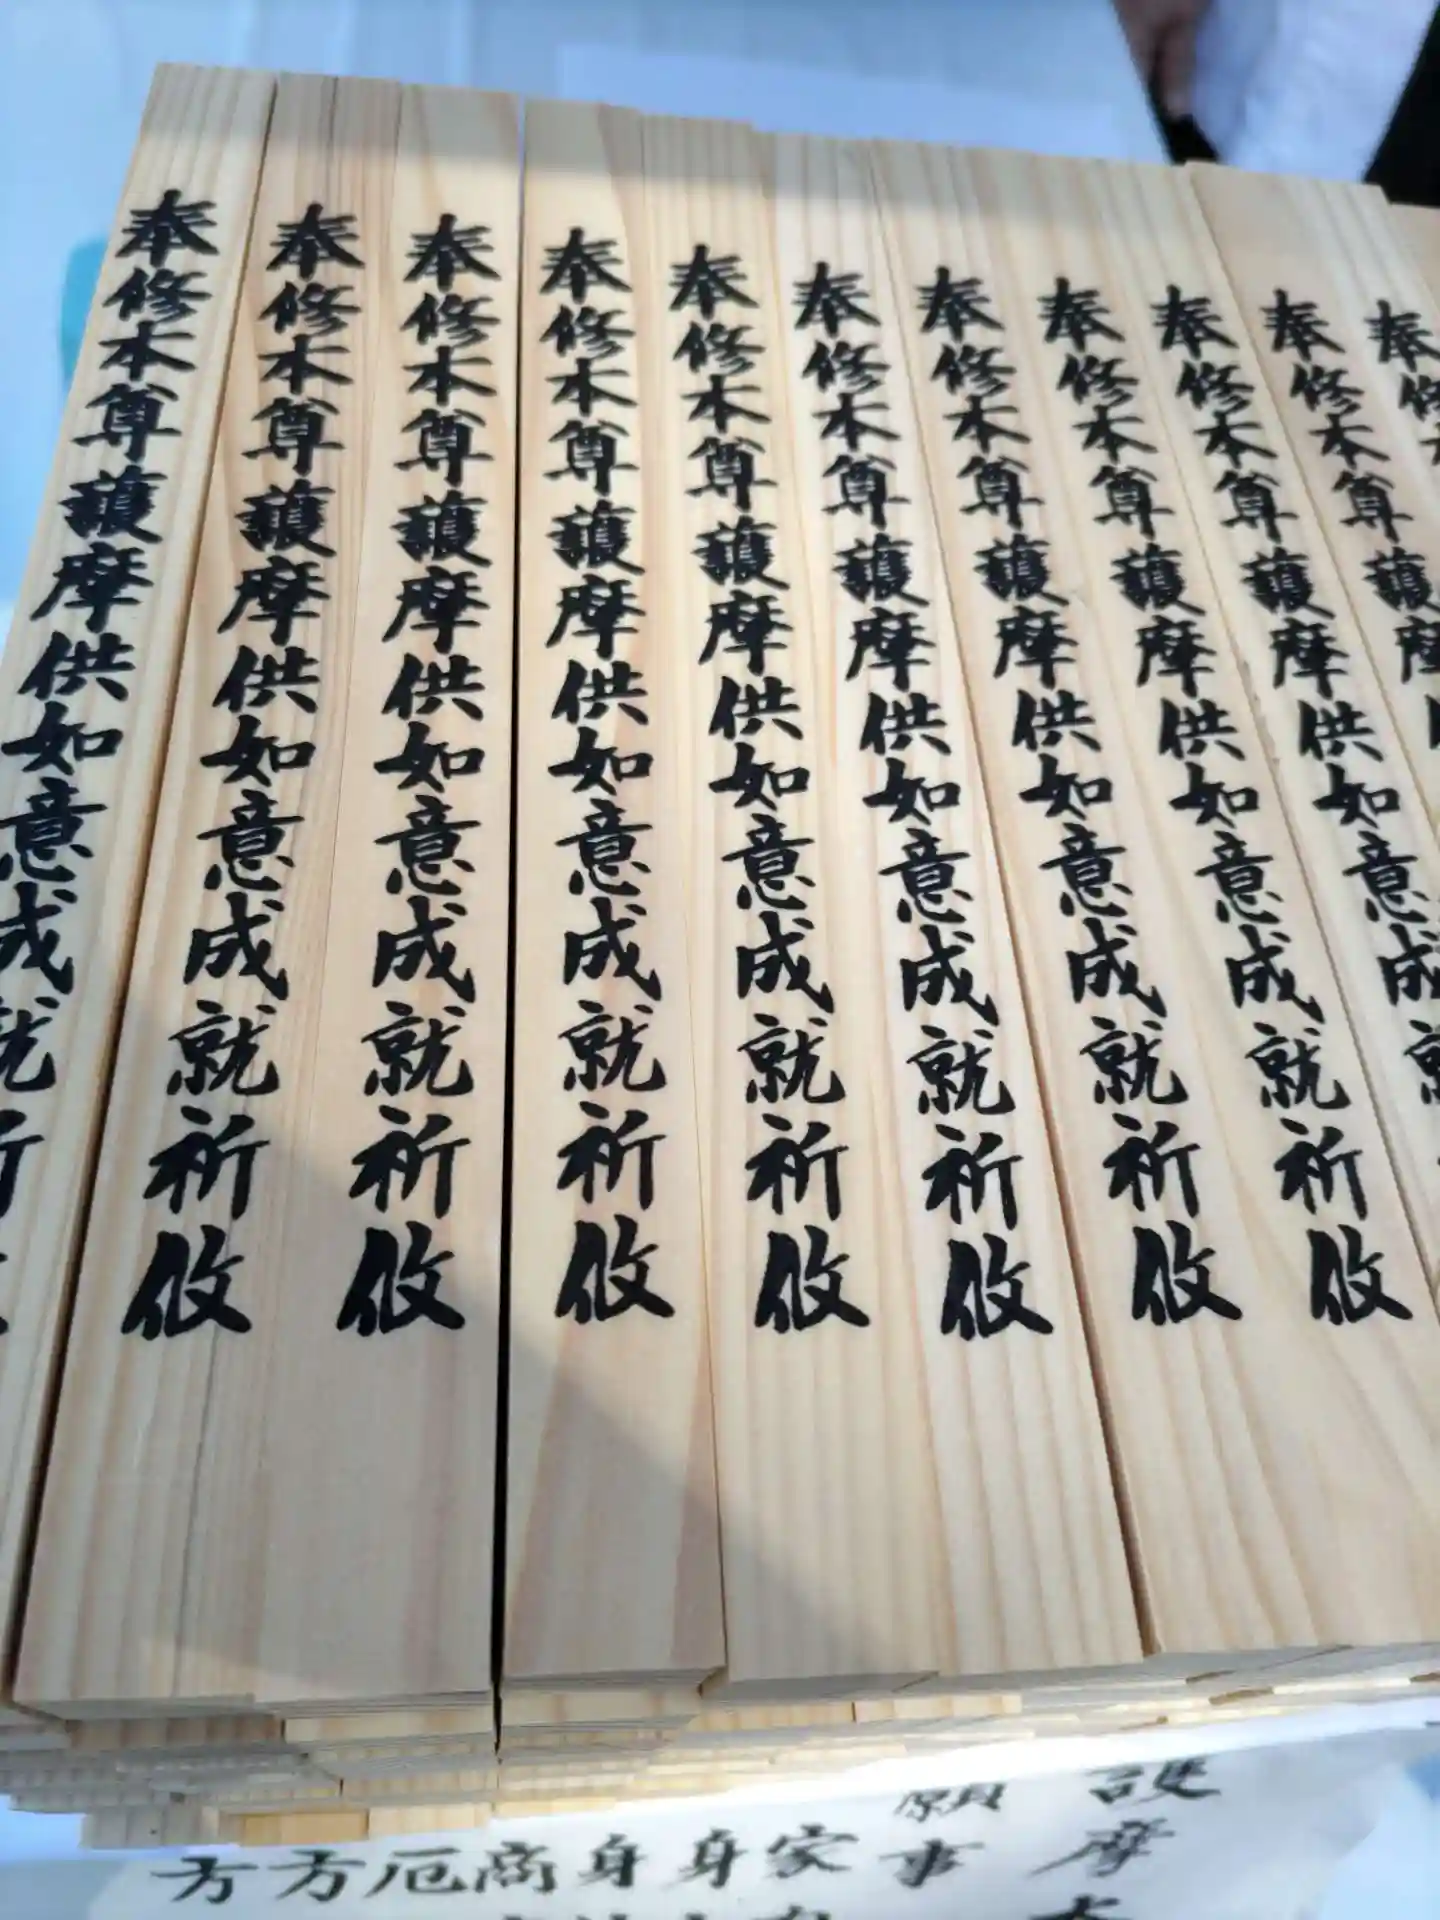 奉修本
奉修本尊護摩
奉修本尊護摩供如意成就
奉修本尊護摩供如意成就祈攸
奉修本尊護摩供如意成就祈攸
奉修本尊護摩供如意成就祈攸
奉修本尊護摩供如意成就祈攸
奉修本尊護摩供如意成就祈攸
奉修本尊護摩供如意成就祈攸
奉修本尊護摩供如意成就祈攸
奉修本尊護摩供如意成就祈
護摩
願事
家
身
身
商
厄
方
方